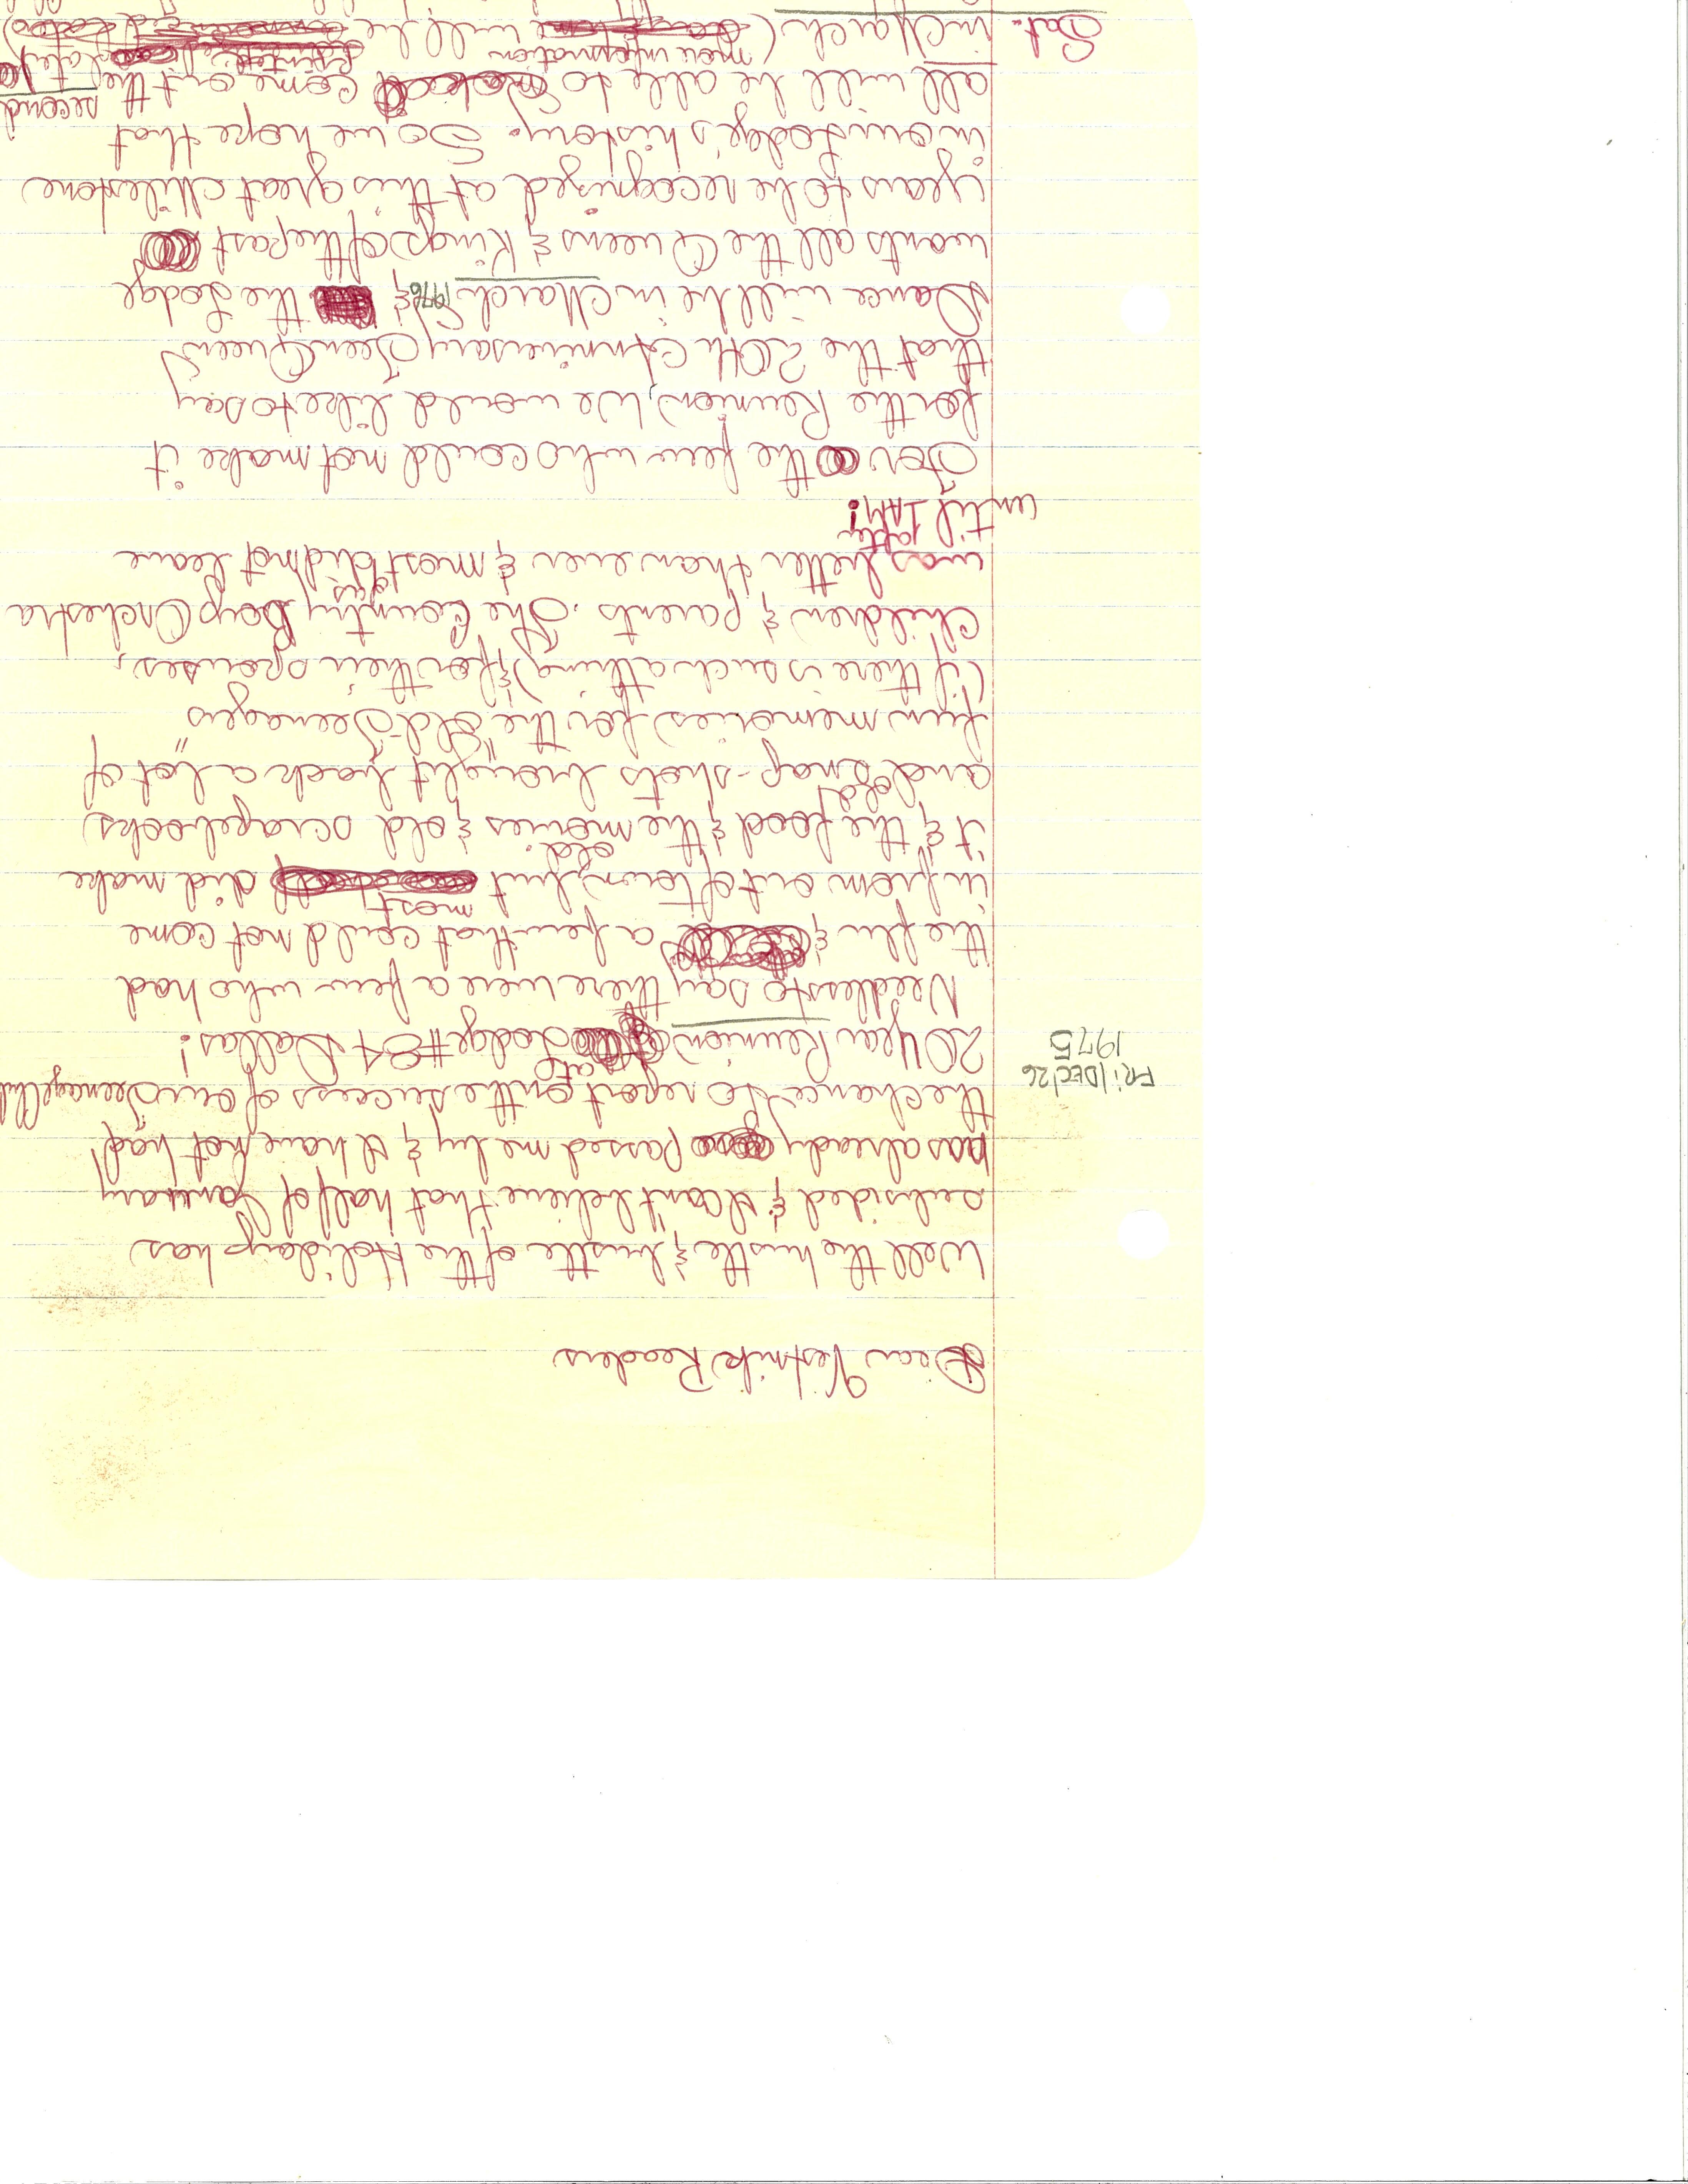 Dear Vestnik Readers
Well the hustle & bustle of the Holidays has
subsided & I can't believe that half of January
has already passed me by & I have not had
the chance to report on the success of our Teenage Club
FRI/DEC/26
1975
20 Year Reunion at Lodge #84 Dallas!
Needless to say there were a few who had
the flu & a few that could not come
in from out of town, but most did make
it & the food & the old movies & old scrapebooks
and old snap-shots brought back a lot of
fun memories for the "old-Teenagers"
(if there is such a thing) & for their spouses,
children & parents. The Country Boys Orchestra
was better than ever & most of us did not leave
until after 1AM!
For the few who could not make it
for the Reunion, We would like to say
that the 20th Anniversary Teen Queen
Dance will be in March, 1976 & the Lodge
wants all the Queens & Kings of the past
years to be recognized at this great Milestone
in our Lodge's history. So we hope that
all will be able to come out the second
Sat. in March (more information will be printed later)